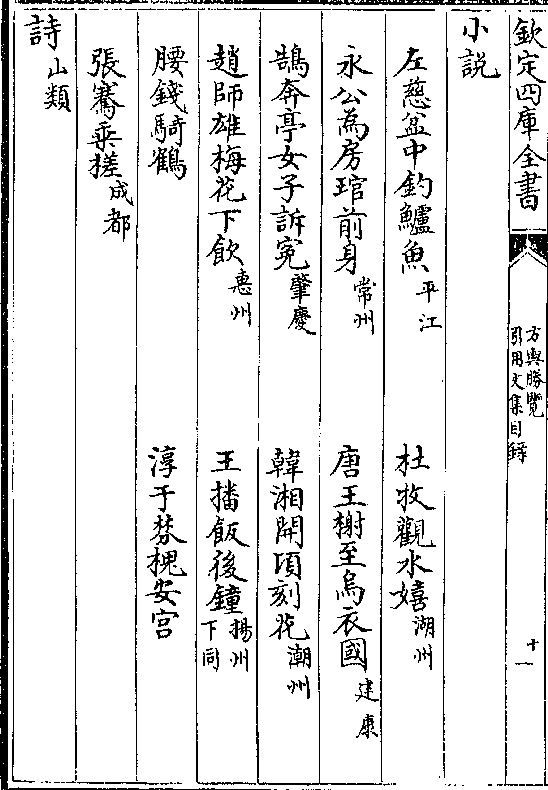 欽定四庫全書
方輿勝覽
引用文集目錄
十一
小説
左慈盆中釣鱸魚平江
杜牧觀水嬉湖州
永公為房琯前身常州
唐王榭至烏衣國建康
鵠奔亭女子訴寃肇慶
韓湘開頃刻花潮州
趙師雄梅花下飲惠州
王播飯後鐘揚州下同
腰錢騎鶴
淳于棼槐安宫
張騫乘槎成都
詩山類